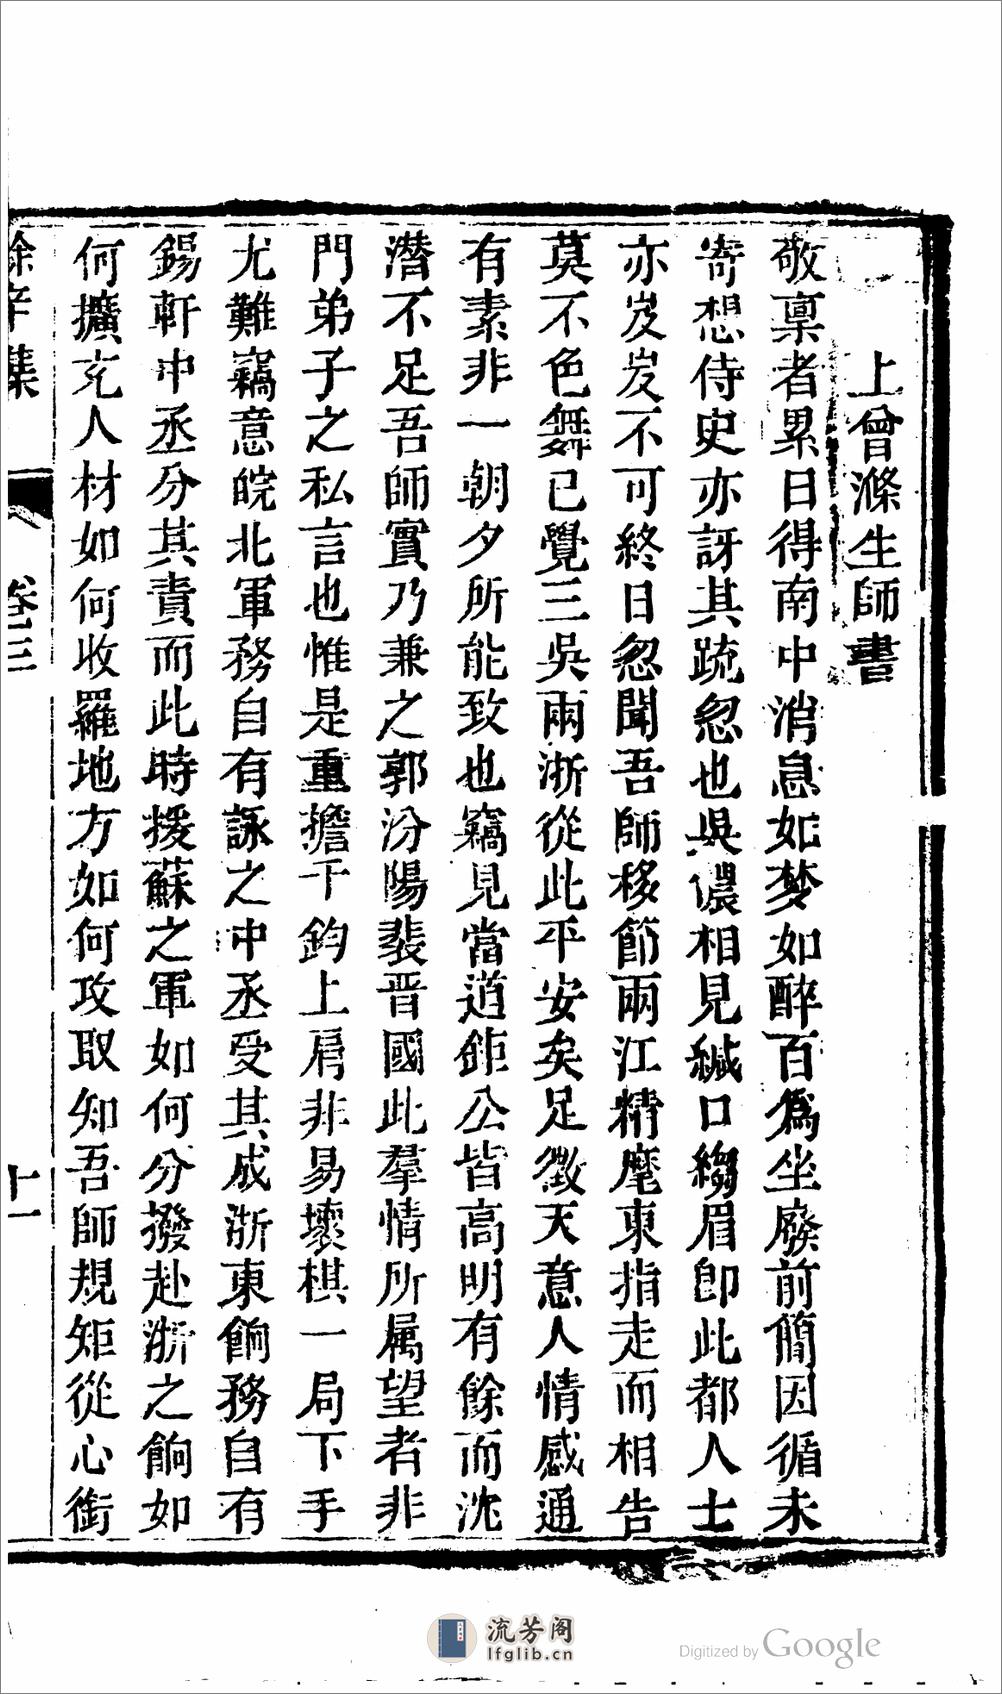 上曾滌生師書
敬稟者累日得南中消息如梦如醉百爲坐廢前簡因循未
寄想侍史亦訝其䟽忽也吳儂相見緘口縐眉卽此都人士
亦岌岌不可終日忽聞吾師移節兩江精麾東指走而相告
莫不色舞已覺三吳兩浙從此平安矣足徵天意人情感通
有素非一朝夕所能致也竊見當道鉅公皆高明有餘而沈
潛不足吾師實乃兼之郭汾陽裴晋國此羣情所属望者非
門弟子之私言也惟是重擔千鈞上肩非易壞棋一局下手
尤難竊意皖北軍務自有詠之中丞受其成浙東餉務自有
錫軒中丞分其責而此時援蘇之軍如何分撥赴浙之餉如
何擴充人材如何收羅地方如何攻取知吾師規矩從心銜
餘辛集 卷三 十一
流芳阁
lfglib.cn
Digitized by Google